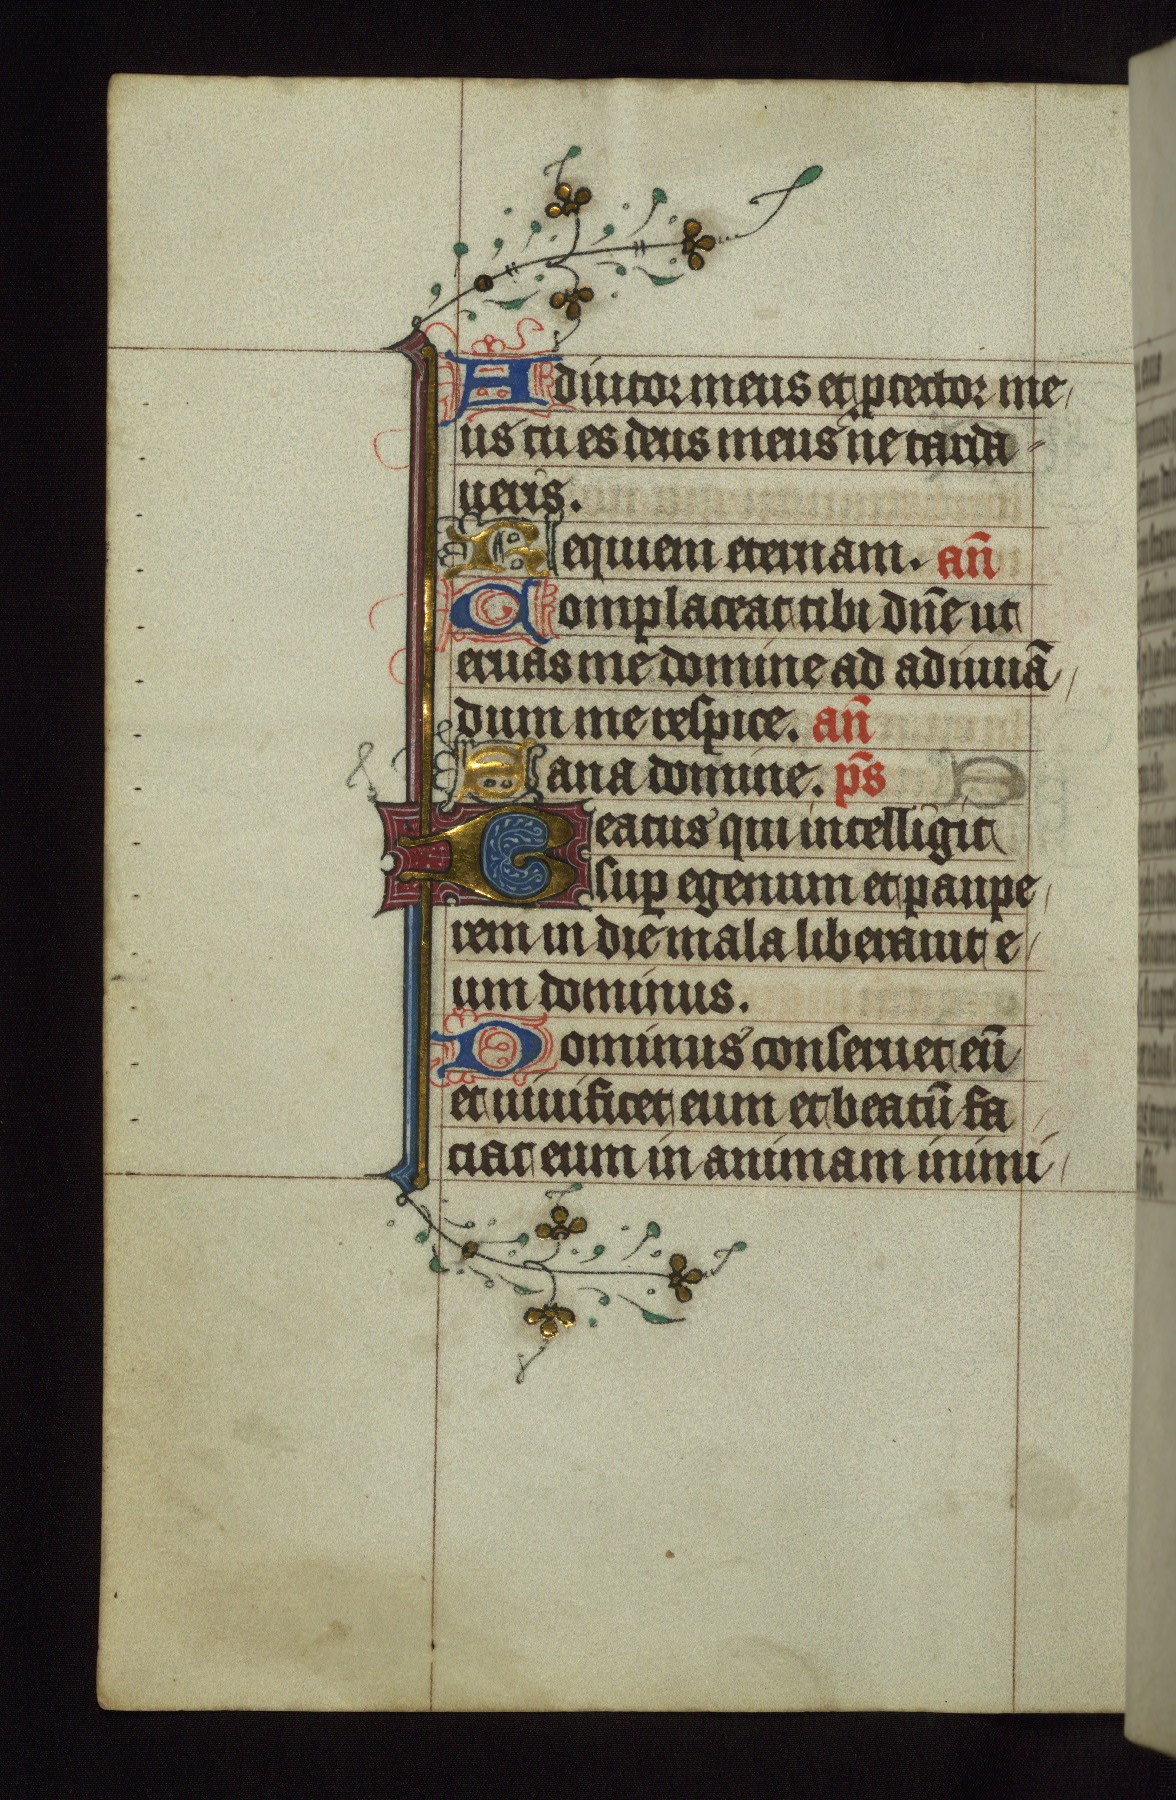 Adiutor meus et ꝓtector me/
us tu es deus meus ne tarda⸗
ueris.
Requiem eternam. an̄
Complaceat tibi dn̄e ut
eruas me domine ad adiuuā/
dum me respice. an̄
Sana domine. ps̄
Beatus qui intelligit
suꝑ egenum et paupe/
rem in die mala liberauit e/
um dominus.
Dominus conseruet eū
et uiuificet eum et beatū fa
ciat eum in animam inimi/